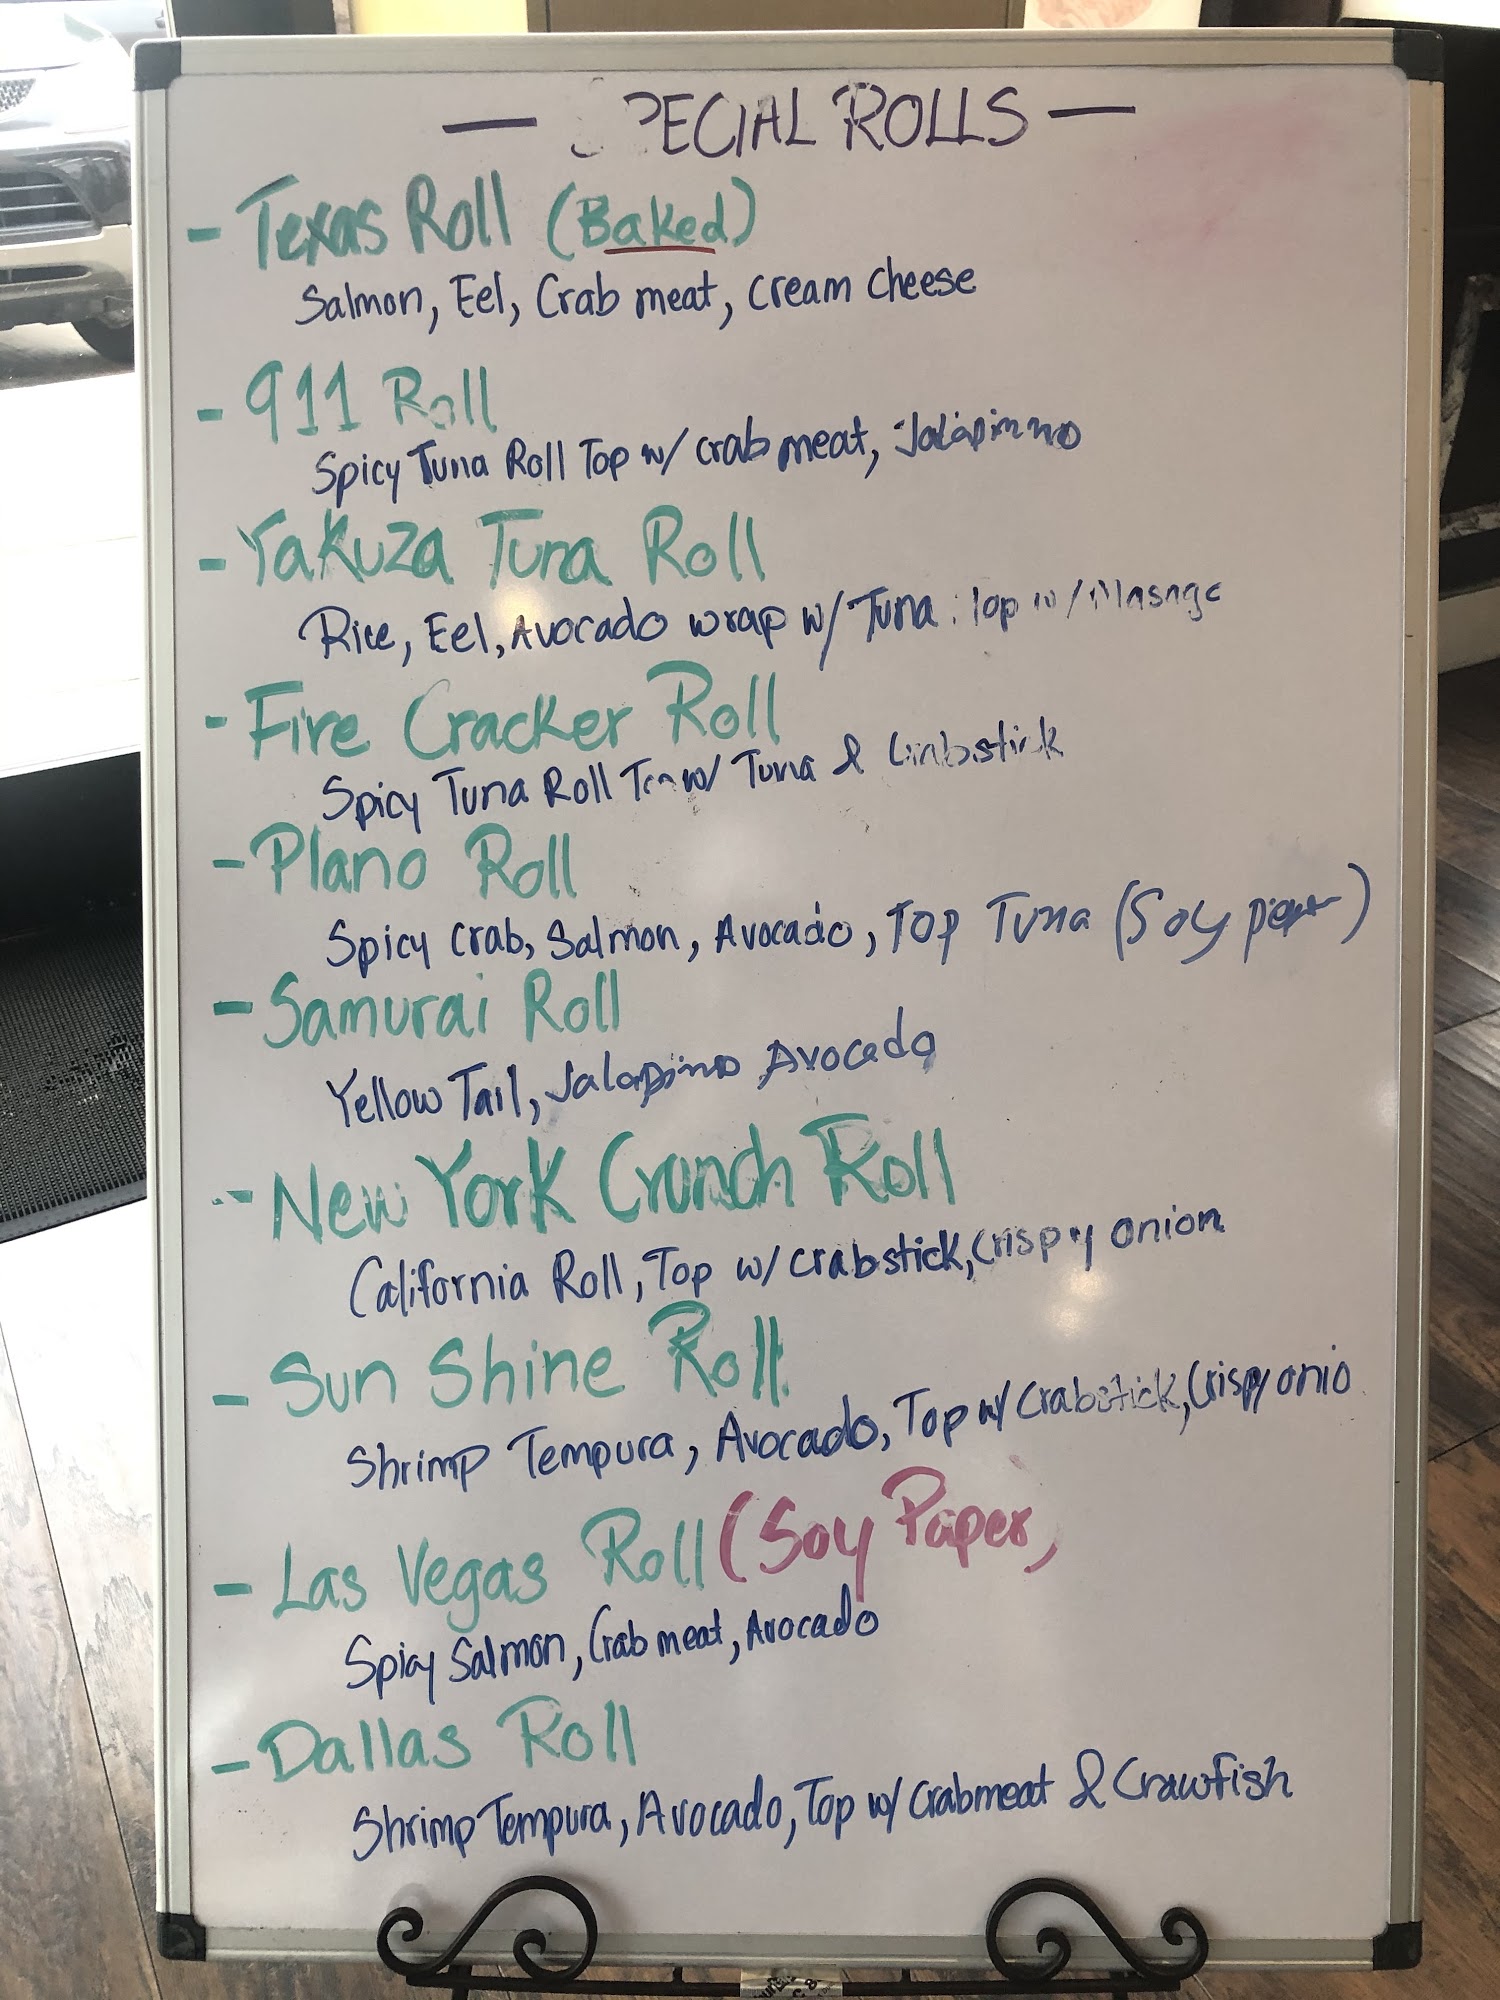 — SPECIAL ROLLS —
- Texas Roll (Baked)
Salmon, Eel, Crab meat, Cream Cheese
- 911 Roll
Spicy Tuna Roll Top w/ crab meat, Jalapinno
- Yakuza Tuna Roll
Rice, Eel, Avocado wrap w/ Tuna. Top w/ Masage
- Fire Cracker Roll
Spicy Tuna Roll Top w/ Tuna & Crabstick
- Plano Roll
Spicy Crab, Salmon, Avocado, Top Tuna (Soy
- Samurai Roll
Yellow Tail, Jalapino Avocado
- New York Crunch Roll
California Roll, Top w/ crabstick, Crispy onion
- Sun Shine Roll
Shrimp Tempura, Avocado, Top w/ Crabstick, Crispy onio
- Las Vegas Roll (Soy Paper)
Spicy Salmon, Crab meat, Avocado
- Dallas Roll
Shrimp Tempura, Avocado, Top w/ Crabmeat & Crawfish